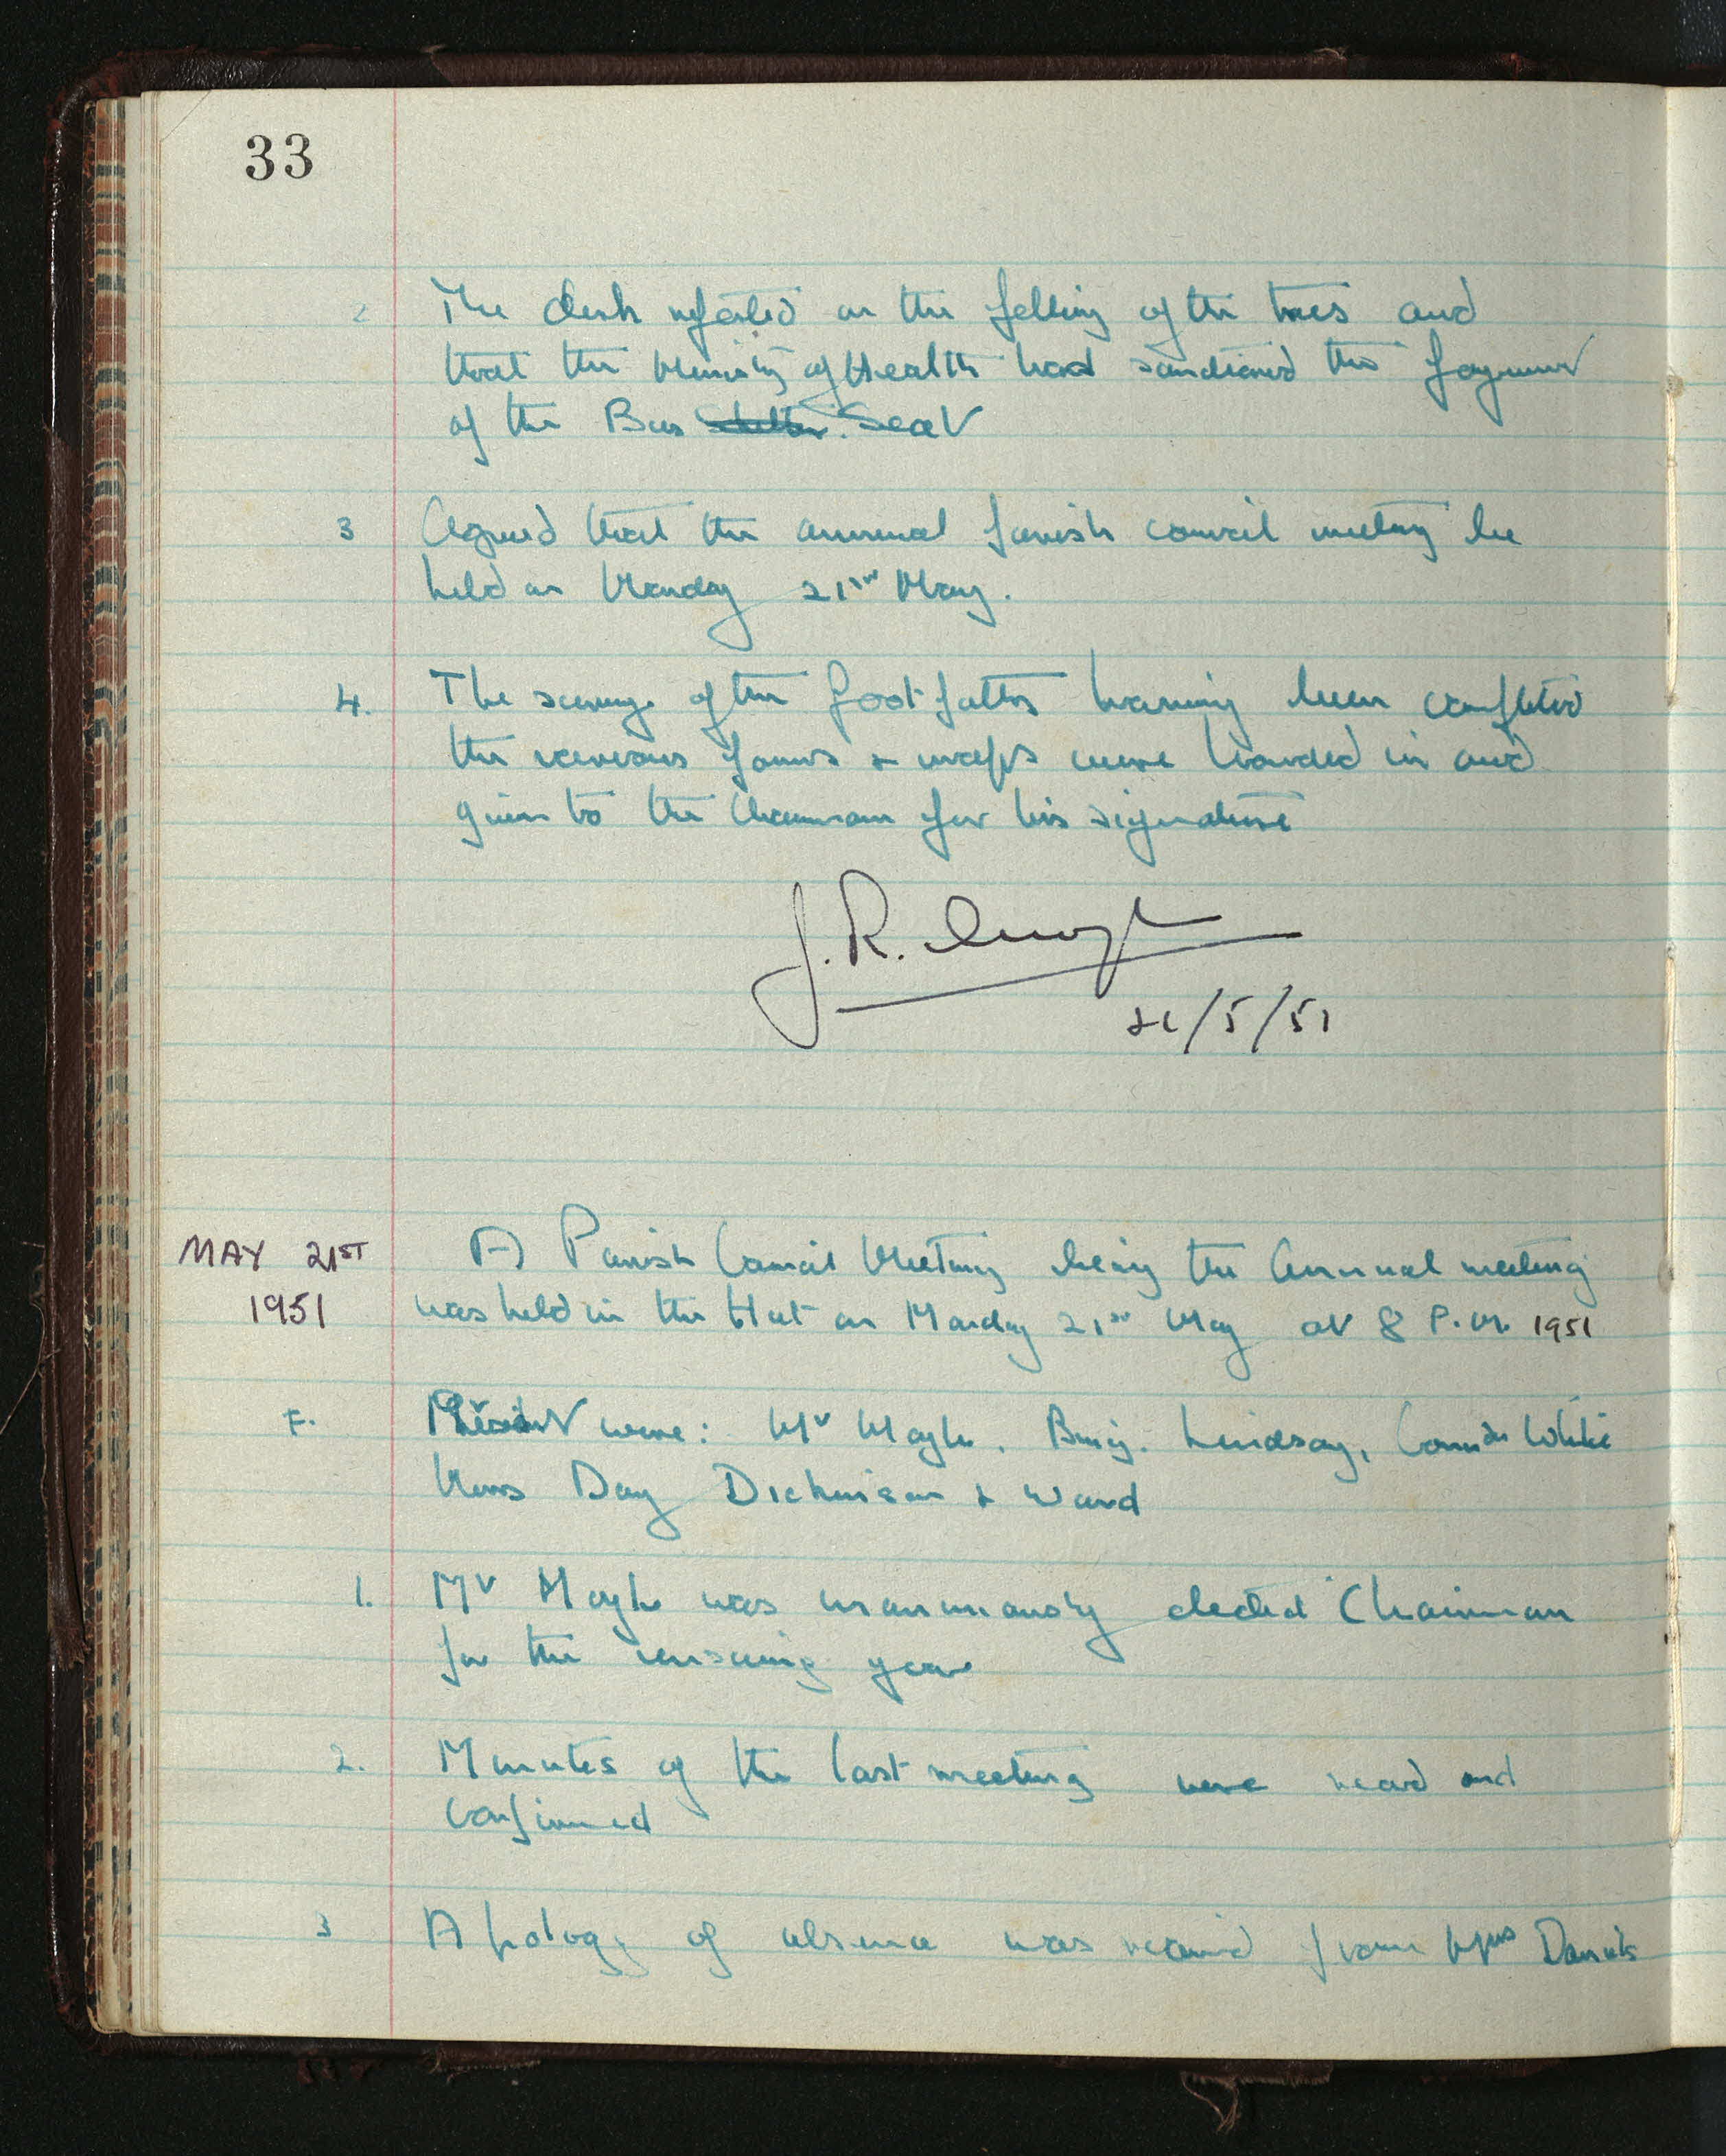 33
2 The clerk reported on the felling of the trees and
that the Ministry of Health had sanctioned the payment
of the Bus Shelter. Seat
3 Agreed that the annual parish council meeting be
held on Monday 21st May.
4. The survey of the footpaths having been completed
the various forms & maps were handed in and
given to the Chairman for his signature
J. R.
21/5/51
MAY 21ST
1951
A Parish Council Meeting being the Annual meeting
was held in the Hut on Monday 21st May at 8 P.M. 1951
Present were: Mr Hoyle. Brig. Lindsay, Comdr White
Mrss Day Dickinson & Ward
1. Mr Hoyle was unanimously elected Chairman
for the ensuing year
2. Minutes of the last meeting were read and
confirmed
3 Apology of absence was received from Mrs Daniels